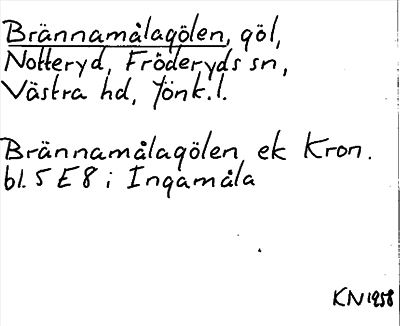 Brännamålagölen, göl,
Notteryd, Fröderyds sn,
Västra hd, Jönk.l.
Brännamålagölen ek Kron.
bl. 5 E 8 i Ingamåla
KN 1958